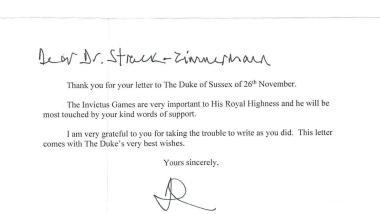 Dear Dr. Strack-Zimmermann
Thank you for your letter to The Duke of Sussex of 26th November.
The Invictus Games are very important to His Royal Highness and he will be
most touched by your kind words of support.
I am very grateful to you for taking the trouble to write as you did. This letter
comes with The Duke's very best wishes.
Yours sincerely,